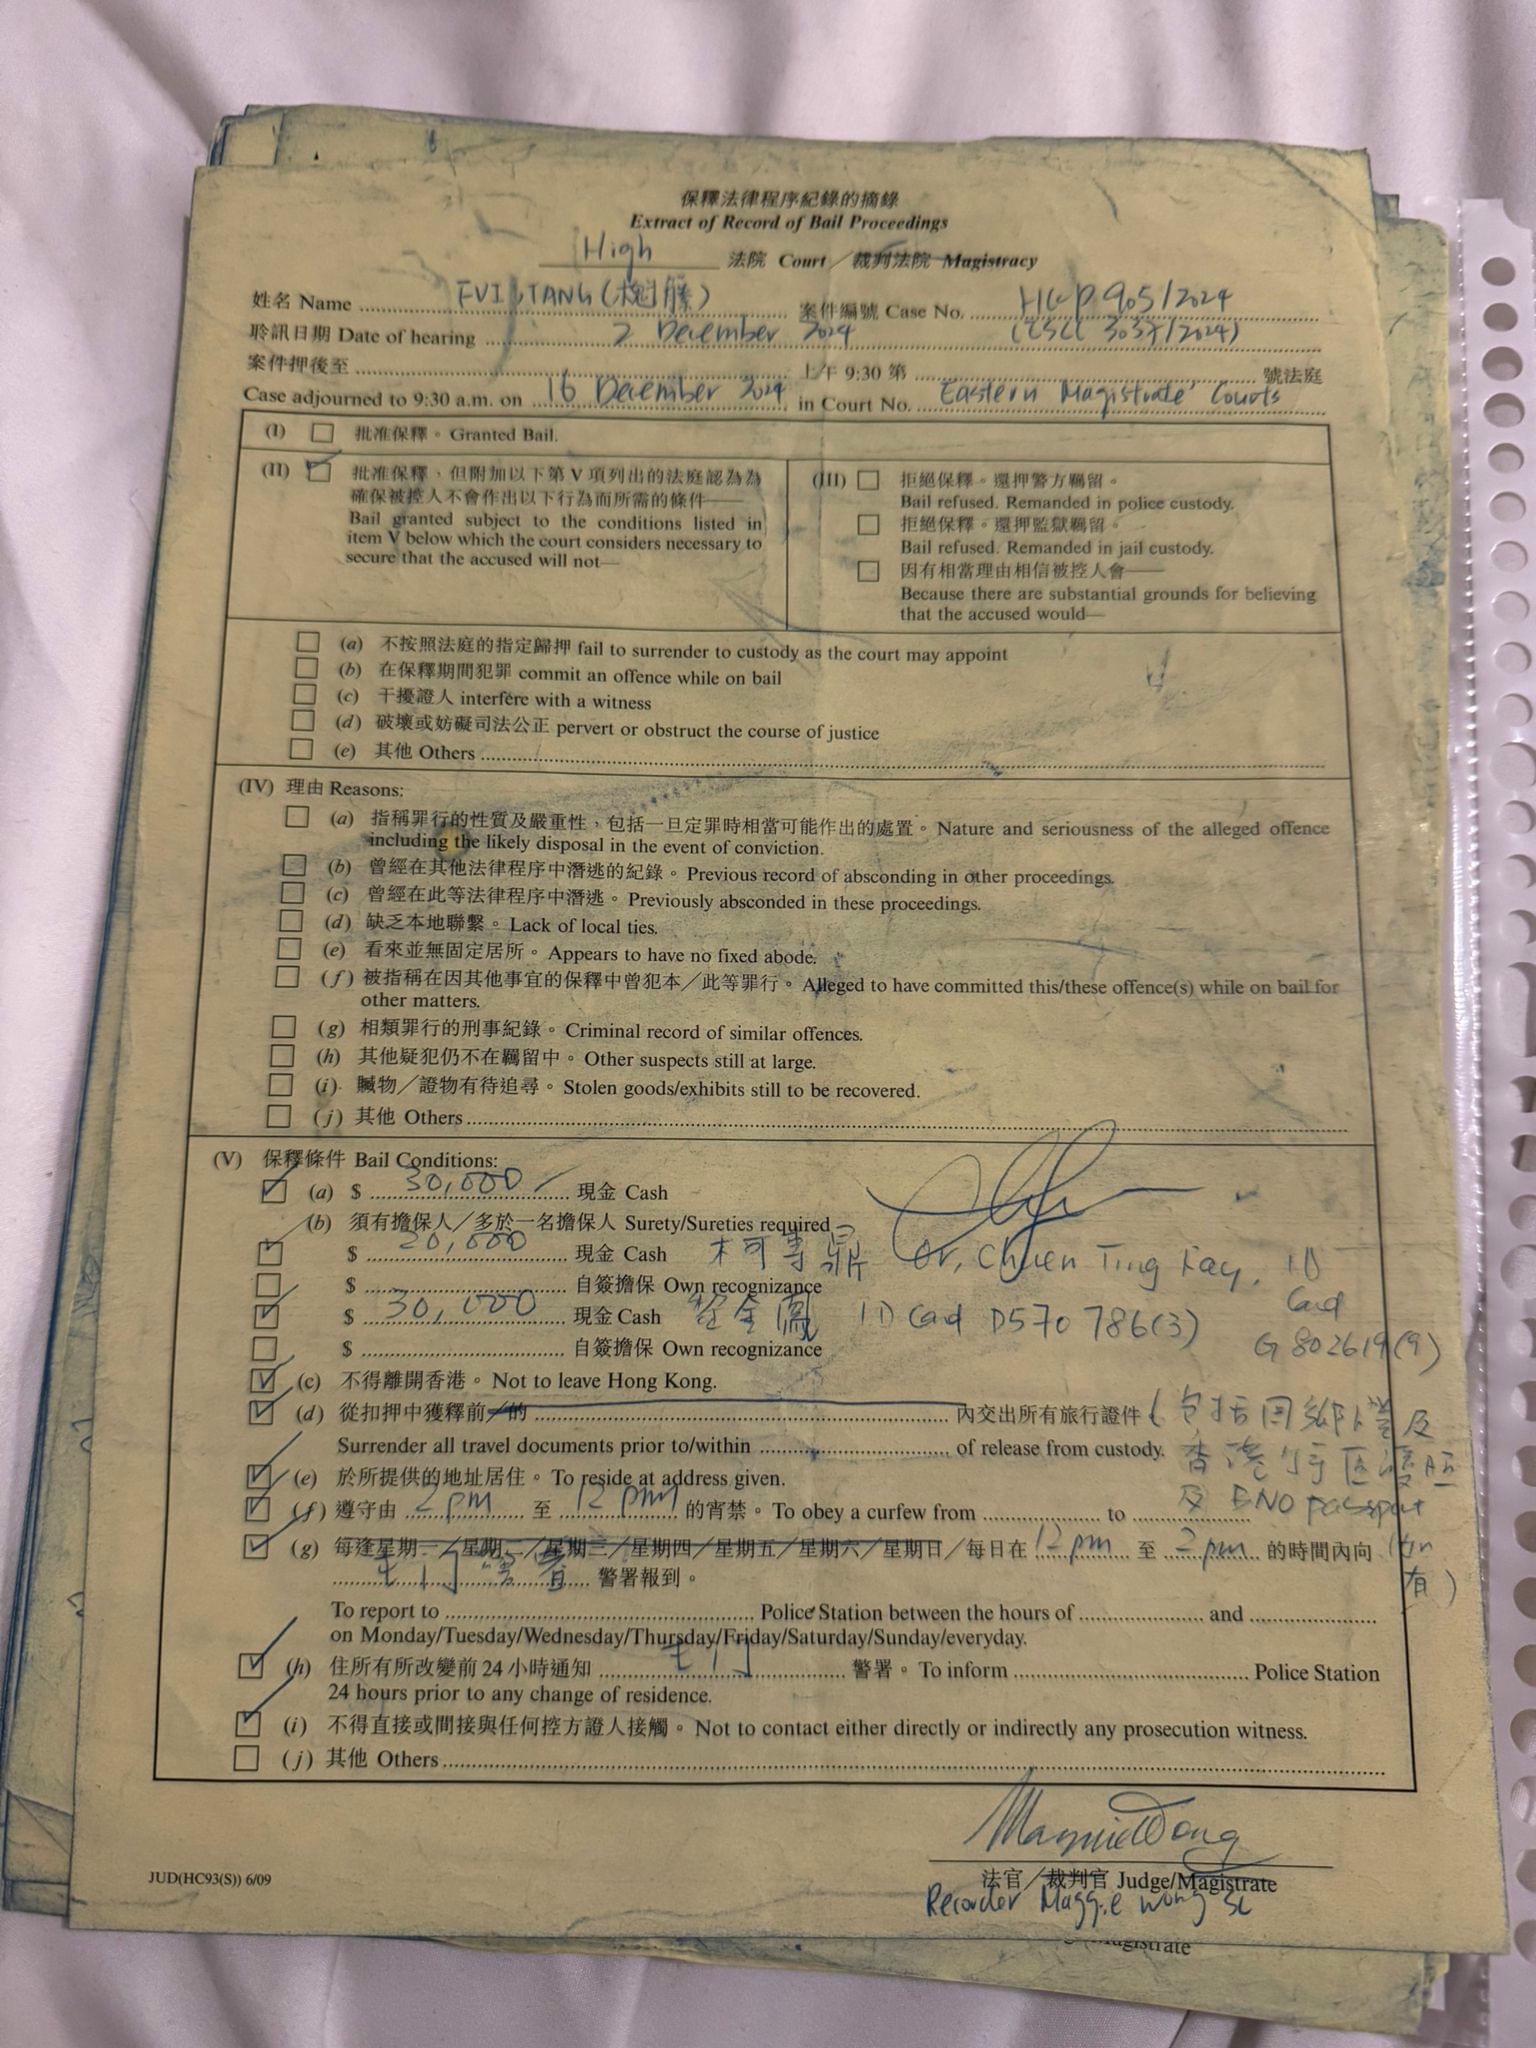 保釋法律程序紀錄的摘錄
Extract of Record of Bail Proceedings
High 法院 Court／裁判法院 Magistracy
姓名 Name 案件編號 Case No. HCCP 905/2024
聆訊日期 Date of hearing 2 December 2024 (ESCC 3037/2024)
案件押後至 上午 9:30 第 號法庭
Case adjourned to 9:30 a.m. on 16 December 2024 in Court No. Eastern Magistrates' Courts
(I) 批准保釋。Granted Bail.
(II) 批准保釋，但附加以下第 V 項列出的法庭認為為
確保被控人不會作出以下行為而所需的條件——
Bail granted subject to the conditions listed in
item V below which the court considers necessary to
secure that the accused will not—
(III) 拒絕保釋。還押警方羈留。
Bail refused. Remanded in police custody.
拒絕保釋。還押監獄羈留。
Bail refused. Remanded in jail custody.
因有相當理由相信被控人會——
Because there are substantial grounds for believing
that the accused would—
(a) 不按照法庭的指定歸押 fail to surrender to custody as the court may appoint
(b) 在保釋期間犯罪 commit an offence while on bail
(c) 干擾證人 interfere with a witness
(d) 破壞或妨礙司法公正 pervert or obstruct the course of justice
(e) 其他 Others
(IV) 理由 Reasons:
(a) 指稱罪行的性質及嚴重性，包括一旦定罪時相當可能作出的處置。Nature and seriousness of the alleged offence
including the likely disposal in the event of conviction.
(b) 曾經在其他法律程序中潛逃的紀錄。Previous record of absconding in other proceedings.
(c) 曾經在此等法律程序中潛逃。Previously absconded in these proceedings.
(d) 缺乏本地聯繫。Lack of local ties.
(e) 看來並無固定居所。Appears to have no fixed abode.
(f) 被指稱在因其他事宜的保釋中曾犯本／此等罪行。Alleged to have committed this/these offence(s) while on bail for
other matters.
(g) 相類罪行的刑事紀錄。Criminal record of similar offences.
(h) 其他疑犯仍不在羈留中。Other suspects still at large.
(i) 贓物／證物有待追尋。Stolen goods/exhibits still to be recovered.
(j) 其他 Others
(V) 保釋條件 Bail Conditions:
(a) $ 30,000 現金 Cash
(b) 須有擔保人／多於一名擔保人 Surety/Sureties required
$ 20,000 現金 Cash 柯 鼎 Or, Chuen Ting Kay, ID
$ 自簽擔保 Own recognizance Card
$ 30,000 現金 Cash 金鳳 ID Card D570786(3)
$ 自簽擔保 Own recognizance G802619(9)
(c) 不得離開香港。Not to leave Hong Kong.
(d) 從扣押中獲釋前／的 內交出所有旅行證件 (包括回鄉證及
Surrender all travel documents prior to/within of release from custody. 香港特區護照
(e) 於所提供的地址居住。To reside at address given.
及 BNO passport
(f) 遵守由 2pm 至 12pm 的宵禁。To obey a curfew from to
(g) 每逢星期一／星期二／星期三／星期四／星期五／星期六／星期日／每日在 12pm 至 2pm 的時間內向 (如
屯門警署 警署報到。 有)
To report to Police Station between the hours of and
on Monday/Tuesday/Wednesday/Thursday/Friday/Saturday/Sunday/everyday.
(h) 住所有所改變前 24 小時通知 屯門 警署。To inform Police Station
24 hours prior to any change of residence.
(i) 不得直接或間接與任何控方證人接觸。Not to contact either directly or indirectly any prosecution witness.
(j) 其他 Others
Maggie Wong
法官／裁判官 Judge/Magistrate
Recorder Maggie Wong SC
JUD(HC93(S)) 6/09
Magistrate